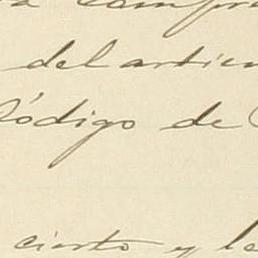 compra
del artícu
Código de C
cierto y le